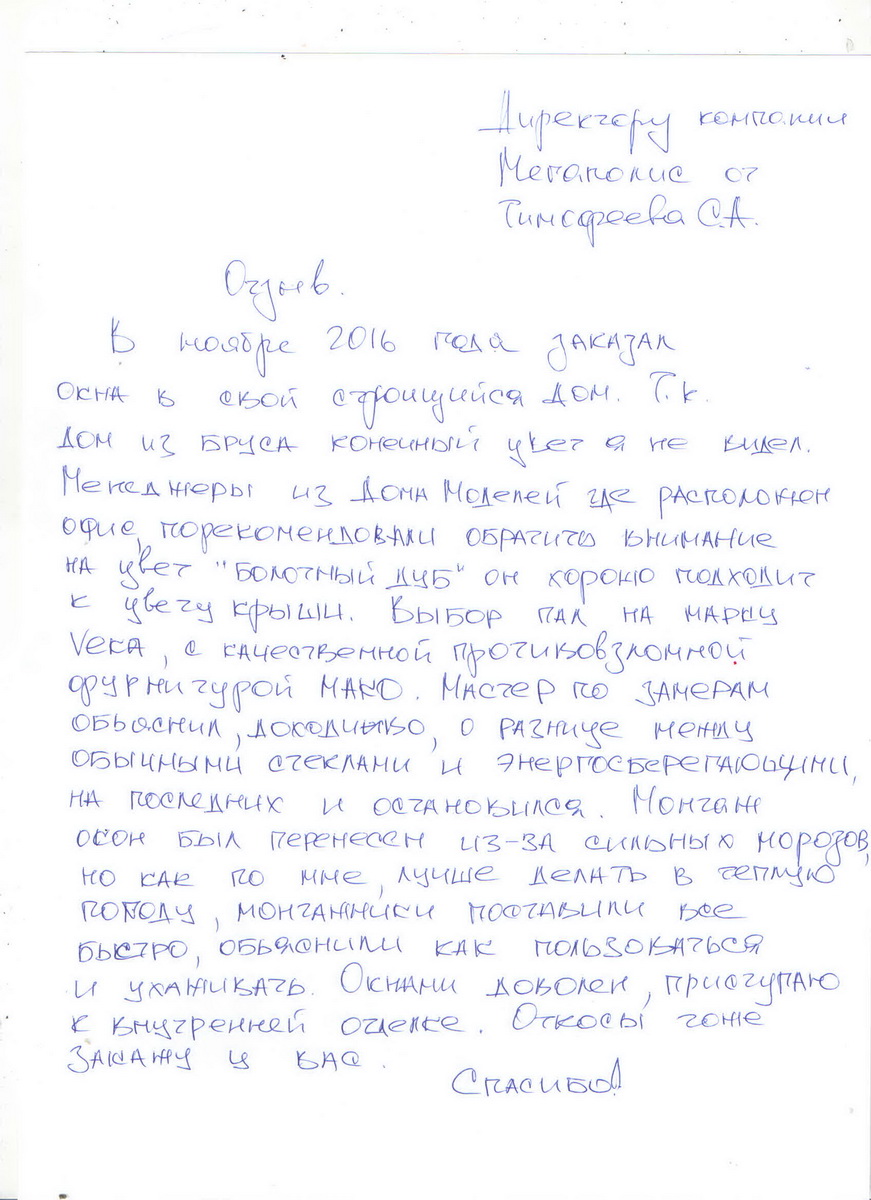 Директору компании
Мегаполис от
Тимофеева С.А.
Отзыв.
В ноябре 2016 года заказал
окна в свой строющийся дом. Т.к.
дом из бруса конечный цвет я не видел.
Менеджеры из Дома Моделей где расположен
офис, порекомендовали обратить внимание
на цвет "болотный дуб" он хорошо подходит
к цвету крыши. Выбор пал на марку
Veka, с качественной противовзломной
фурнитурой МАКО. Мастер по замерам
обьяснил, доходчиво, о разнице между
обычными стеклами и энергосберегающими,
на последних и остановился. Монтаж
окон был перенесен из-за сильных морозов,
но как по мне, лучше делать в теплую
погоду, монтажники поставили все
быстро, обьяснили как пользоваться
и ухаживать. Окнами доволен, приступаю
к внутренней отделке. Откосы тоже
закажу у вас.
Спасибо!